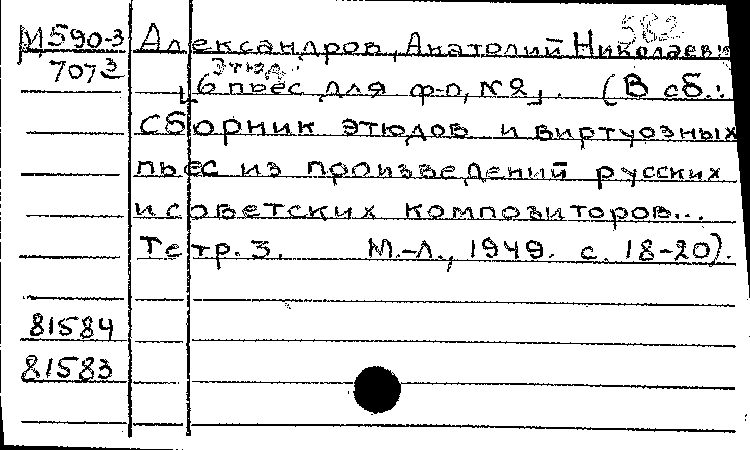 582
М590-3 Александров, Анатолий Николаевич
7073 Этюд.
[6 пьес для ф-п, №2]. (В сб.:
Сборник этюдов и виртуозных
пьес из произведений русских
и советских композиторов...
Тетр. 3. М.-Л., 1949. с. 18-20).
81584
81583